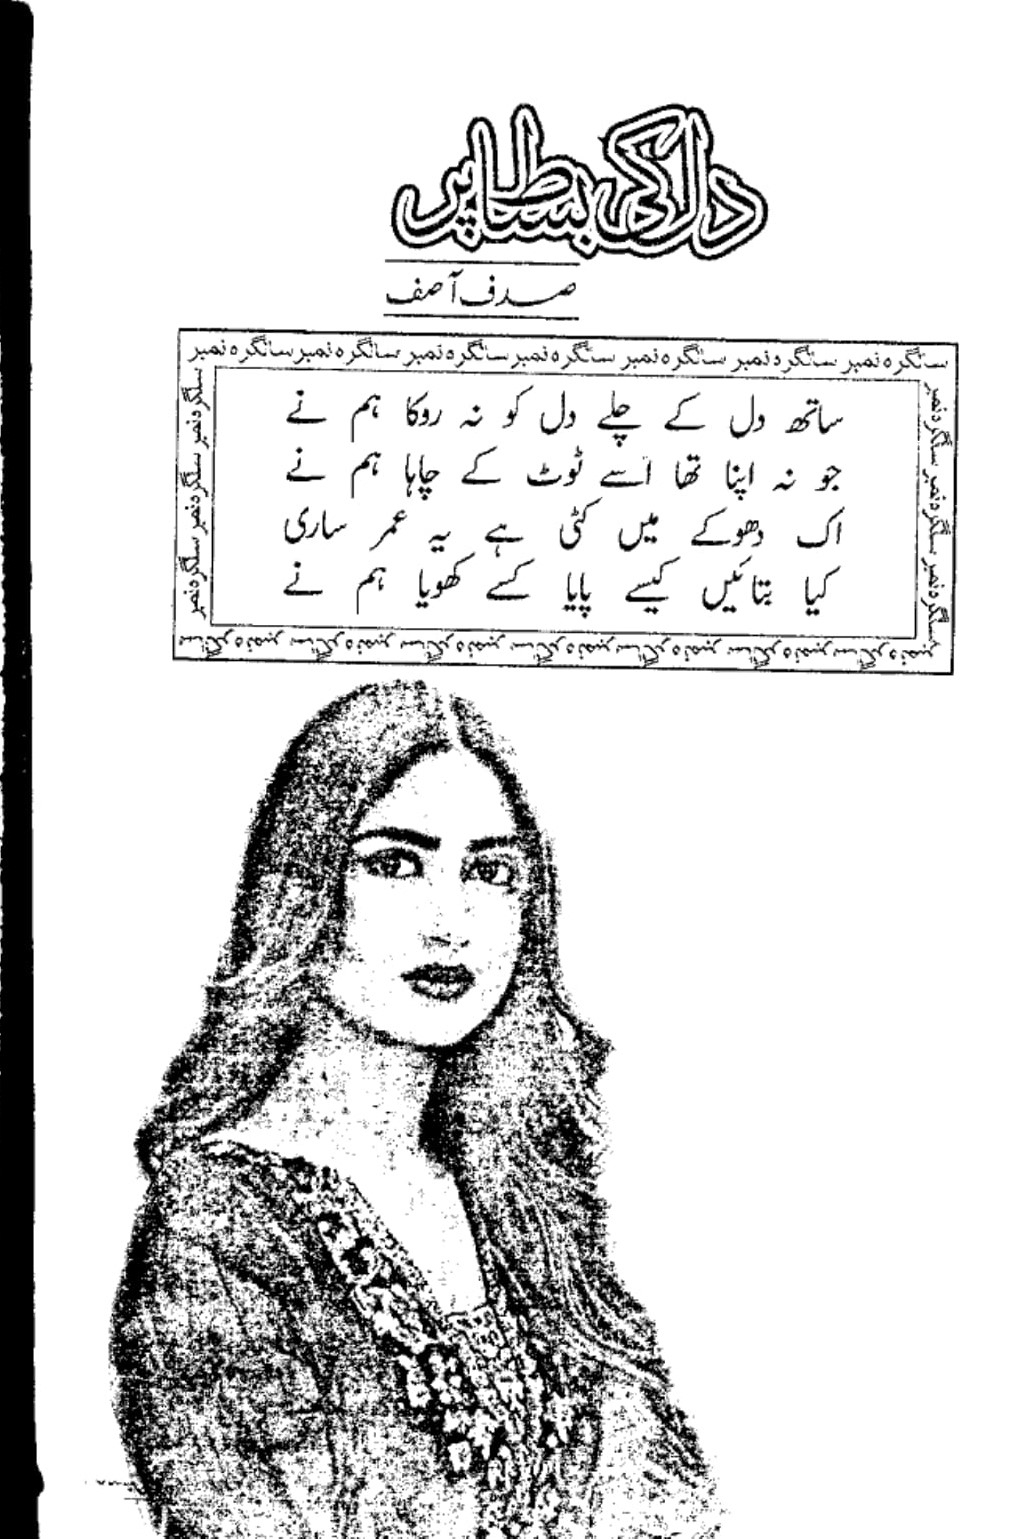 دل کی بساط پر
صدف آصف
سالگرہ نمبر سالگرہ نمبر سالگرہ نمبر سالگرہ نمبر سالگرہ نمبر سالگرہ نمبر سالگرہ نمبر
ساتھ دل کے چلے دل کو نہ روکا ہم نے
جو نہ اپنا تھا اسے ٹوٹ کے چاہا ہم نے
اک دھوکے میں کٹی ہے یہ عمر ساری
کیا بتائیں کیسے پایا کسے کھویا ہم نے
سالگرہ نمبر سالگرہ نمبر سالگرہ نمبر
سالگرہ نمبر سالگرہ نمبر سالگرہ نمبر
سالگرہ نمبر سالگرہ نمبر سالگرہ نمبر سالگرہ نمبر سالگرہ نمبر سالگرہ نمبر سالگرہ نمبر